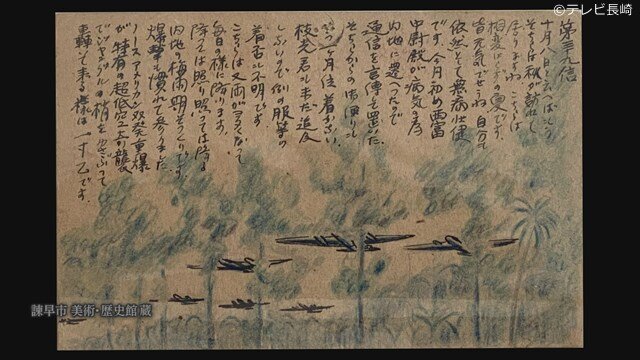 第三九信
十月八日と云へばもう
そちらは秋が訪れて
居りませうね こちらは
相変らずの夏です。
皆元気でせうね 自分も
依然として無病壮健
です。今月初め西富
中尉殿が病気の為
内地に還へったので
通信を言傳を置いた。
そちらからの
ヶ月位着かない。
枝光君も未だ追及
しないので例の服等の
着否は不明です。
こちらは又雨が多くなって
毎日の様に降ります。
降っては照り照っては降る
内地の梅雨期そっくりです。
爆撃も慣れて参りました
ノースアメリカン双発重爆
が特有の超低空の襲
でジャングルの梢を
轟いて来る様は一寸乙です。
©テレビ長崎
諫早市 美術・歴史館 蔵